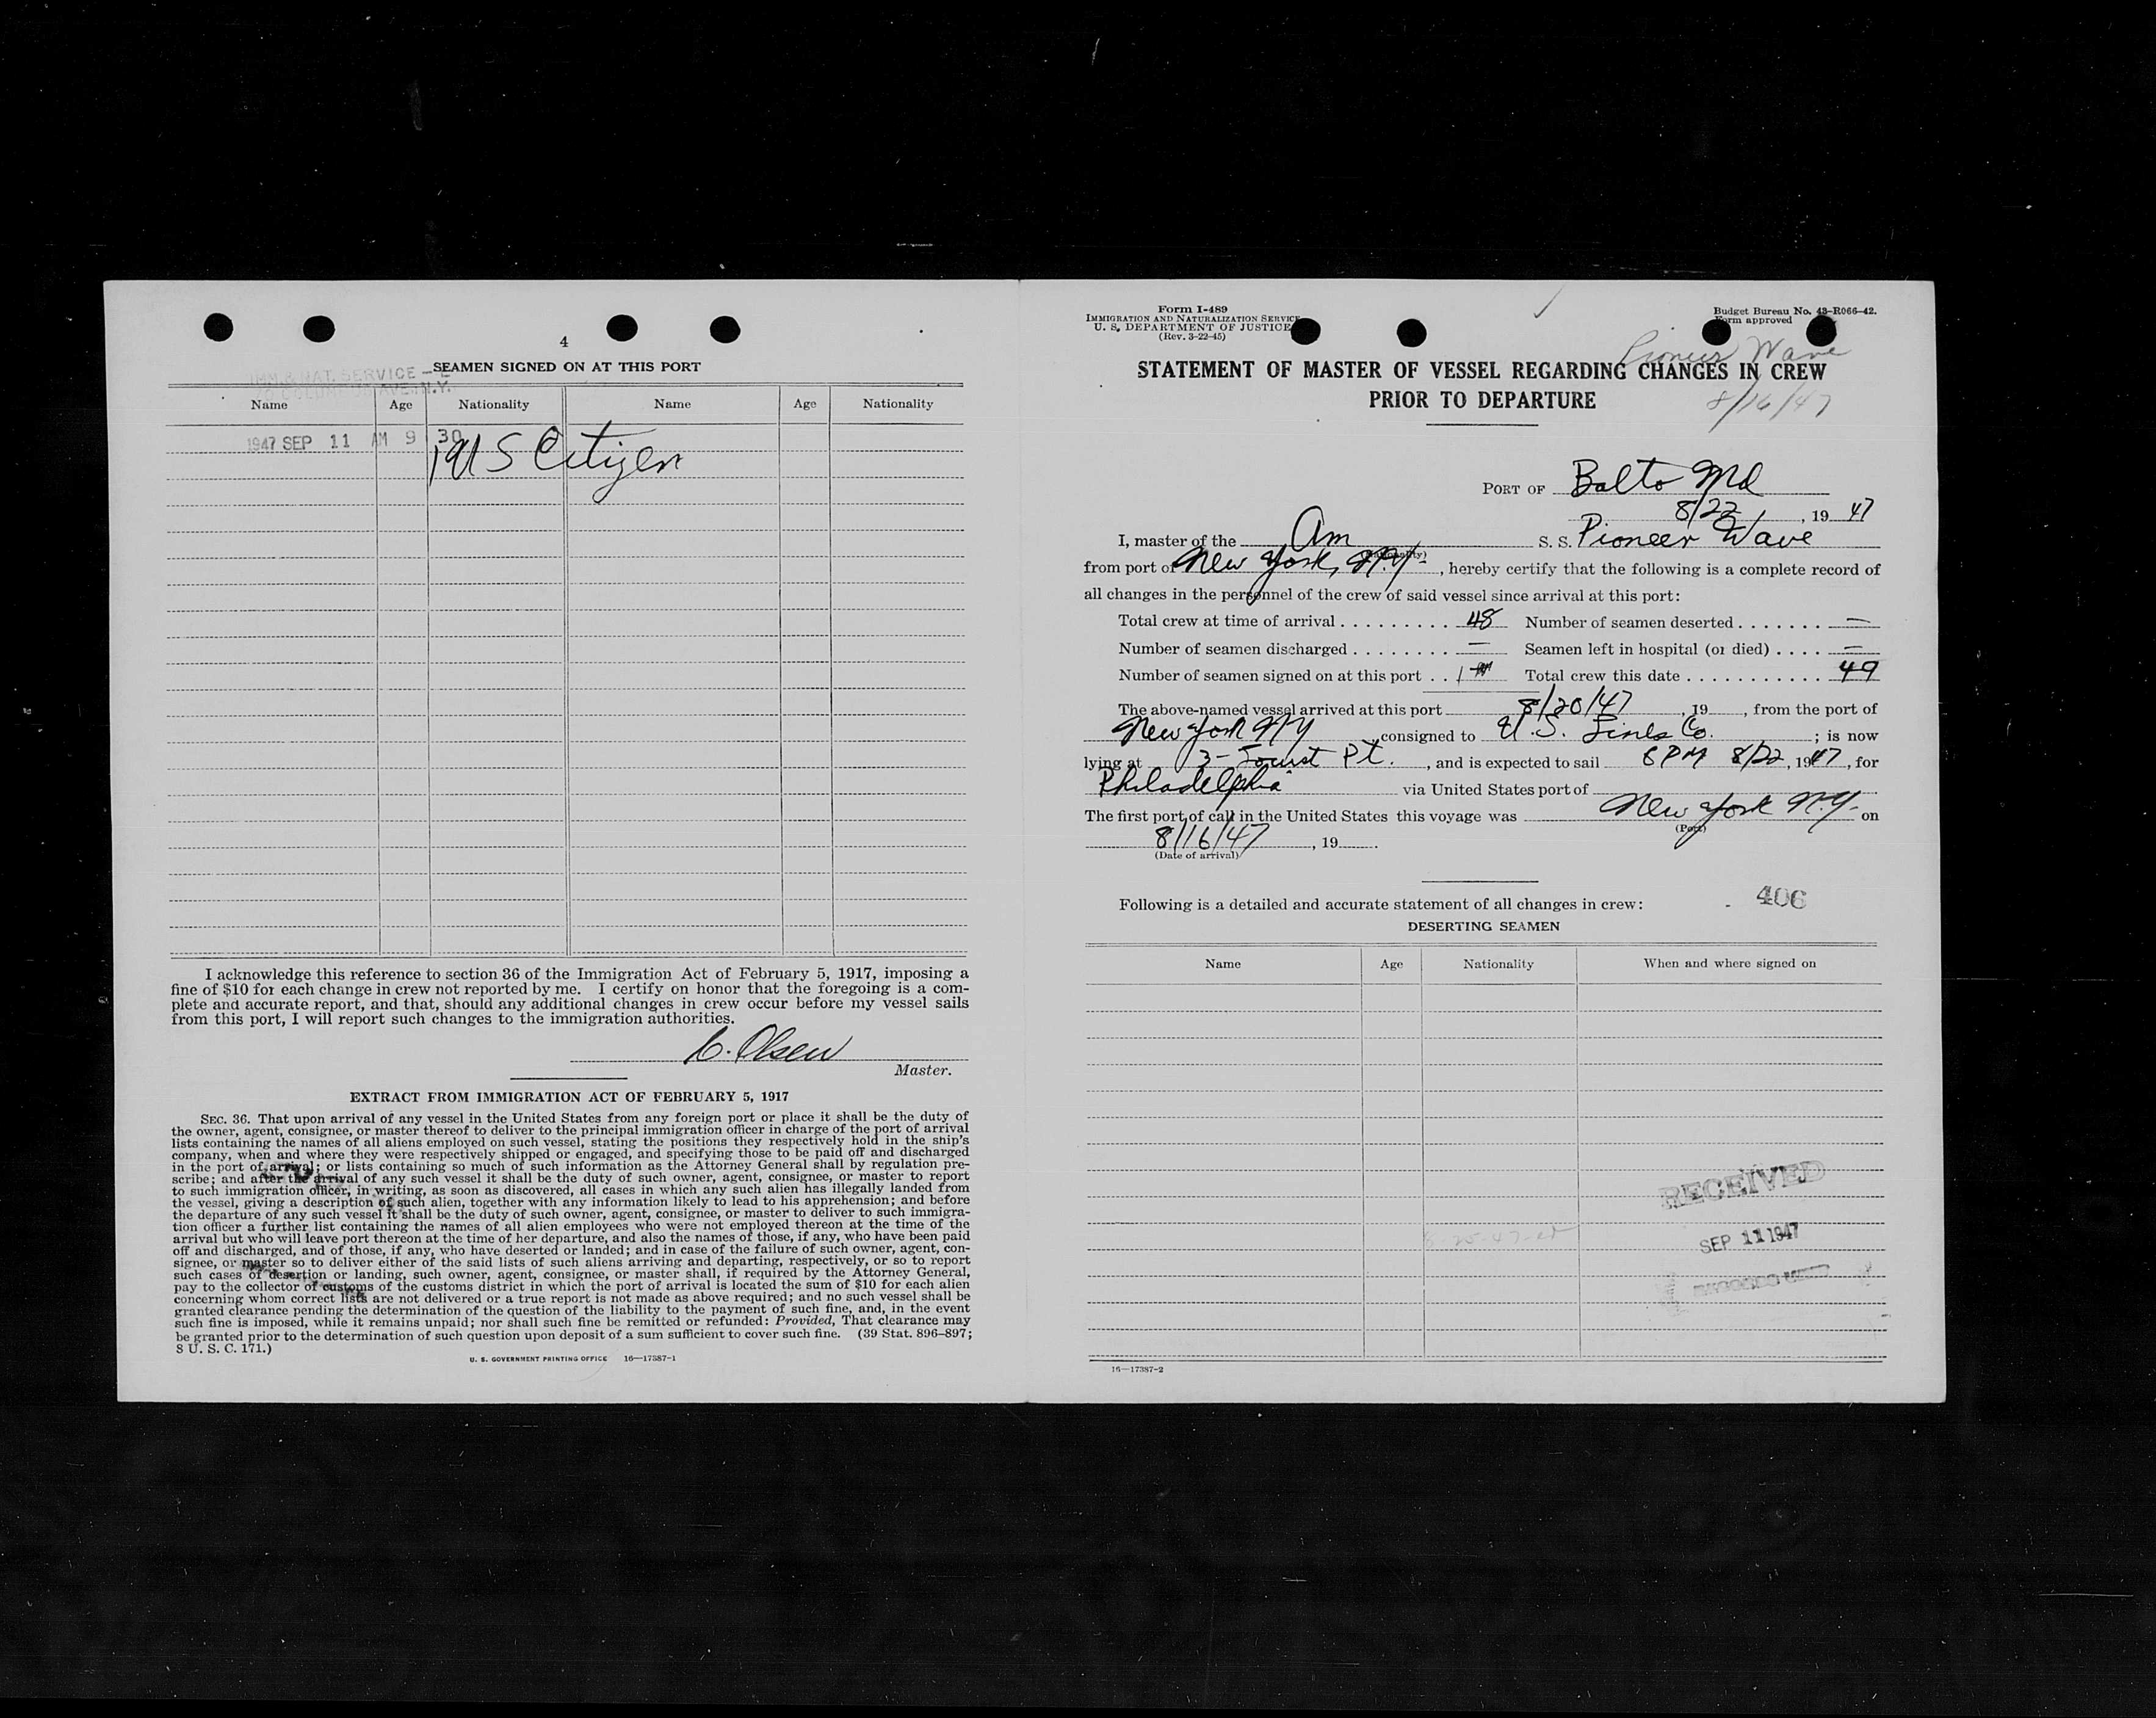 4
SEAMEN SIGNED ON AT THIS PORT
IMM. & NAT. SERVICE
COLUMBUS AVE. N.Y.
Name Age Nationality Name Age Nationality
1947 SEP 11 AM 9 30
1 US Citizen
I acknowledge this reference to section 36 of the Immigration Act of February 5, 1917, imposing a
fine of $10 for each change in crew not reported by me. I certify on honor that the foregoing is a com-
plete and accurate report, and that, should any additional changes in crew occur before my vessel sails
from this port, I will report such changes to the immigration authorities.
C. Olsen
Master.
EXTRACT FROM IMMIGRATION ACT OF FEBRUARY 5, 1917
SEC. 36. That upon arrival of any vessel in the United States from any foreign port or place it shall be the duty of
the owner, agent, consignee, or master thereof to deliver to the principal immigration officer in charge of the port of arrival
lists containing the names of all aliens employed on such vessel, stating the positions they respectively hold in the ship's
company, when and where they were respectively shipped or engaged, and specifying those to be paid off and discharged
in the port of arrival; or lists containing so much of such information as the Attorney General shall by regulation pre-
scribe; and after the arrival of any such vessel it shall be the duty of such owner, agent, consignee, or master to report
to such immigration officer, in writing, as soon as discovered, all cases in which any such alien has illegally landed from
the vessel, giving a description of such alien, together with any information likely to lead to his apprehension; and before
the departure of any such vessel it shall be the duty of such owner, agent, consignee, or master to deliver to such immigra-
tion officer a further list containing the names of all alien employees who were not employed thereon at the time of the
arrival but who will leave port thereon at the time of her departure, and also the names of those, if any, who have been paid
off and discharged, and of those, if any, who have deserted or landed; and in case of the failure of such owner, agent, con-
signee, or master so to deliver either of the said lists of such aliens arriving and departing, respectively, or so to report
such cases of desertion or landing, such owner, agent, consignee, or master shall, if required by the Attorney General,
pay to the collector of customs of the customs district in which the port of arrival is located the sum of $10 for each alien
concerning whom correct lists are not delivered or a true report is not made as above required; and no such vessel shall be
granted clearance pending the determination of the question of the liability to the payment of such fine, and, in the event
such fine is imposed, while it remains unpaid; nor shall such fine be remitted or refunded: Provided, That clearance may
be granted prior to the determination of such question upon deposit of a sum sufficient to cover such fine. (39 Stat. 896-897;
8 U. S. C. 171.)
U. S. GOVERNMENT PRINTING OFFICE 16—17387-1
Form I-489
IMMIGRATION AND NATURALIZATION SERVICE
U. S. DEPARTMENT OF JUSTICE
(Rev. 3-22-45)
Budget Bureau No. 43-R066-42.
Form approved
Pioneer Wave
8/16/47
STATEMENT OF MASTER OF VESSEL REGARDING CHANGES IN CREW
PRIOR TO DEPARTURE
PORT OF Balto Md
8/22, 19 47
I, master of the Am S. S. Pioneer Wave
(Nationality)
from port of New York, N.Y., hereby certify that the following is a complete record of
all changes in the personnel of the crew of said vessel since arrival at this port:
Total crew at time of arrival . . . . . . . . . . 48 Number of seamen deserted . . . . . . . —
Number of seamen discharged . . . . . . . . . — Seamen left in hospital (or died) . . . . —
Number of seamen signed on at this port . . 1 Total crew this date . . . . . . . . . . . 49
The above-named vessel arrived at this port 8/20/47, 19 , from the port of
New York NY consigned to U.S. Lines Co. ; is now
lying at 3- Locust Pt. , and is expected to sail 6 PM 8/22, 1947, for
Philadelphia via United States port of
The first port of call in the United States this voyage was New York N.Y. on
(Port)
8/16/47 , 19 .
(Date of arrival)
Following is a detailed and accurate statement of all changes in crew:
406
DESERTING SEAMEN
Name Age Nationality When and where signed on
RECEIVED
SEP 11 1947
16—17387-2